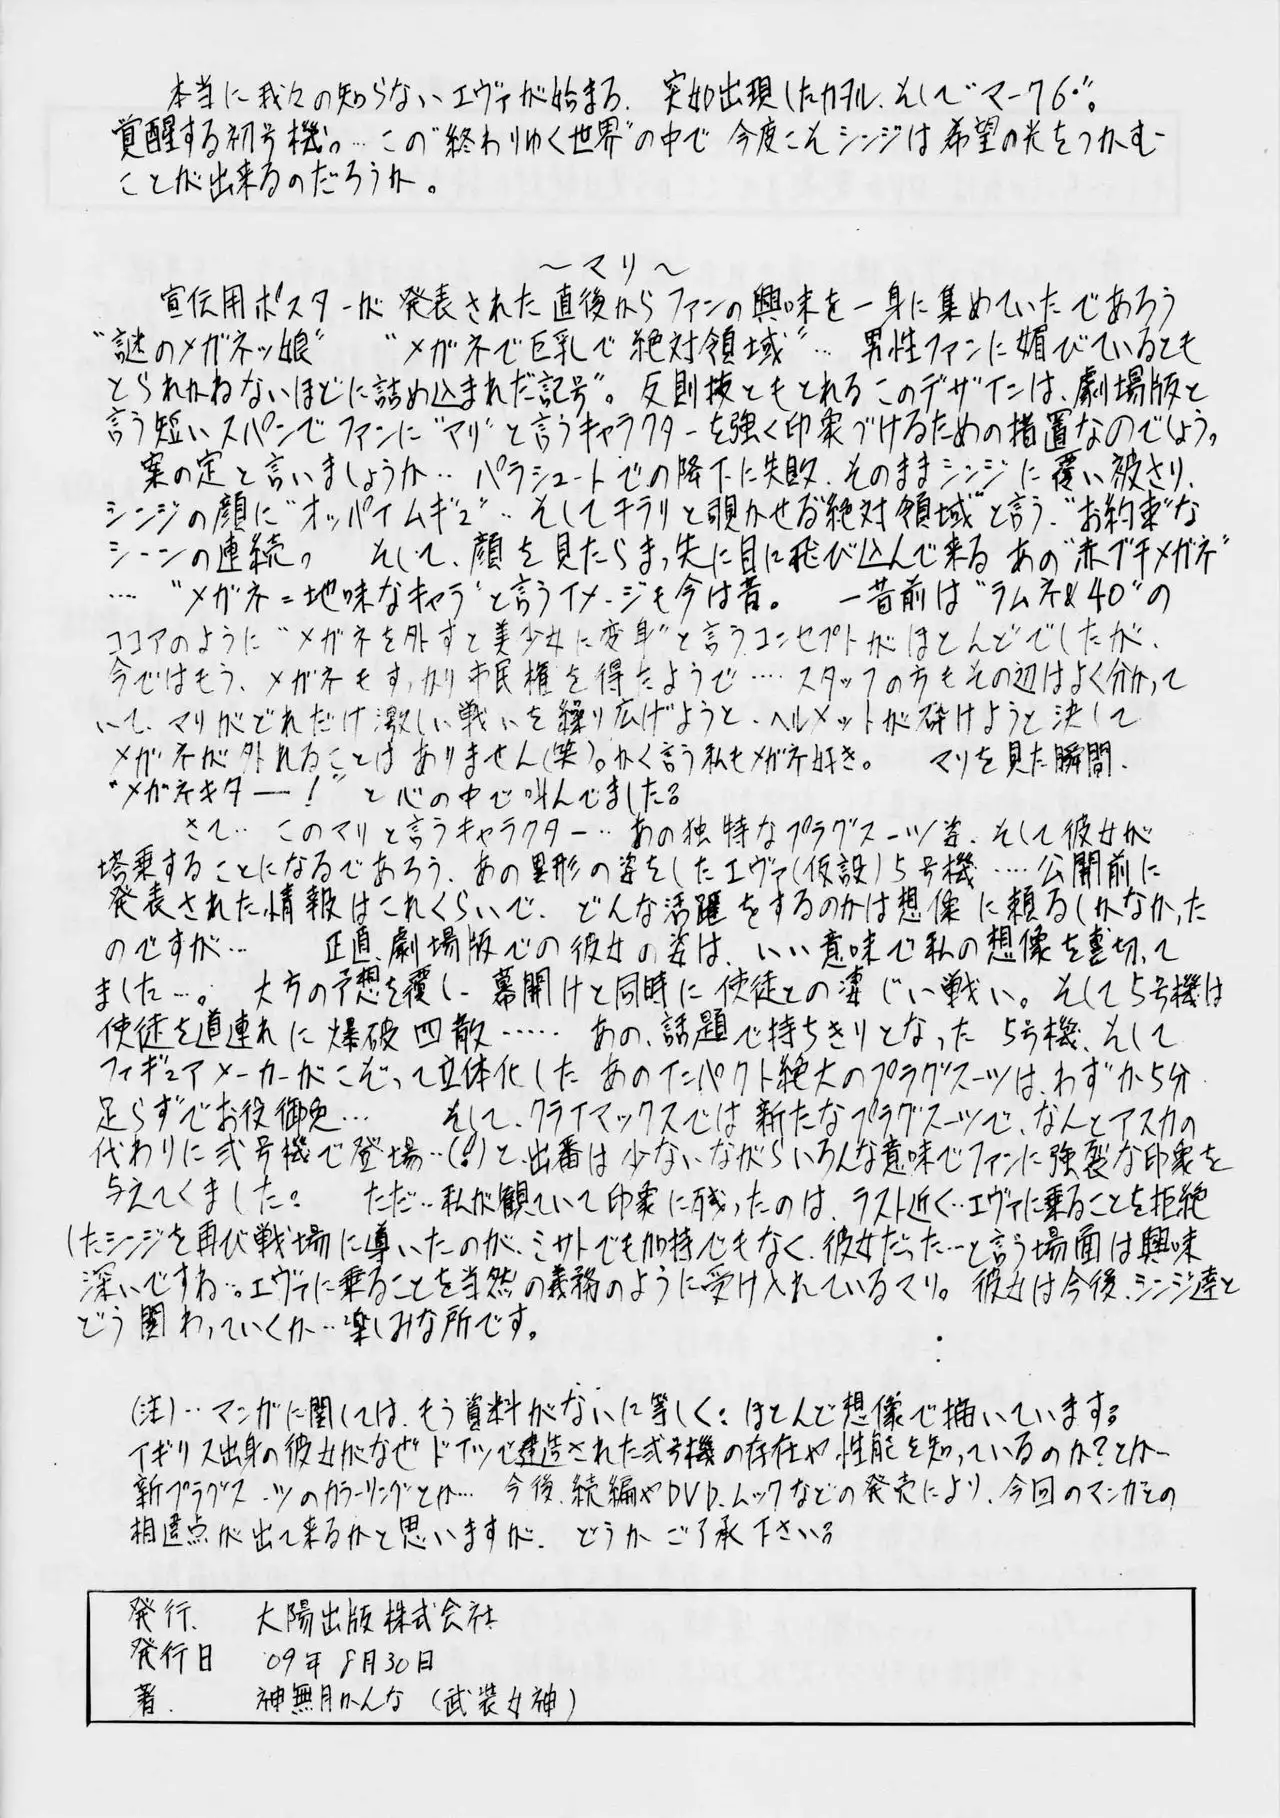 本当に我々の知らないエヴァが始まる. 突如出現したカヲル、そして"マーク6"。
覚醒する初号機。… この"終わりゆく世界"の中で 今度こそシンジは希望の光をつかむ
ことが出来るのだろうか。
～マリ～
宣伝用ポスターが 発表された直後から ファンの興味を一身に集めていたであろう
"謎のメガネッ娘" "メガネで巨乳で絶対領域"… 男性ファンに媚びているとも
とられかねないほどに詰め込まれだ記号"。反則技ともとれるこのデザインは、劇場版と
言う短いスパンでファンに"マリ"と言うキャラクターを強く印象づけるための措置なのでしょう。
案の定と言いましょうか… パラシュートでの降下に失敗、そのままシンジに覆い被さり、
シンジの顔に"オッパイムギュ"… そしてチラリと覗かせる"絶対領域"と言う、"お約束"な
シーンの連続。 そして、顔を見たらまっ先に目に飛び込んで来る あの"赤ブチメガネ"
…. "メガネ=地味なキャラ"と言うイメージも今は昔。 一昔前は"ラムネ&40"の
ココアのように"メガネを外すと美少女に変身"と言うコンセプトがほとんどでしたが、
今ではもう、メガネもすっかり市民権を得たようで…. スタッフの方もその辺はよく分かって
いて、マリがどれだけ激しい戦いを繰り広げようと、ヘルメットが砕けようと決して
メガネが外れることはありません(笑)。かく言う私もメガネ好き。 マリを見た瞬間、
"メガネキター!" と心の中で叫んでました。
さて… このマリと言うキャラクター… あの独特なプラグスーツ姿、そして彼女が
搭乗することになるであろう、あの異形の姿をしたエヴァ(仮設)5号機….. 公開前に
発表された情報はこれくらいで、どんな活躍をするのかは想像に頼るしかなかった
のですが… 正直、劇場版での彼女の姿は、いい意味で私の想像を裏切って
ました…。 大方の予想を覆し、幕開けと同時に使徒との凄じい戦い。そして5号機は
使徒を道連れに爆破四散…… あの、話題で持ちきりとなった 5号機、そして
フィギュアメーカーがこぞって立体化したあのインパクト絶大のプラグスーツは、わずか5分
足らずでお役御免… そして、クライマックスでは新たなプラグスーツで、なんとアスカの
代わりに弐号機で登場…(!)と、出番は少ないながらいろんな意味でファンに強烈な印象を
与えてくました。 ただ… 私が観ていて印象に残ったのは、ラスト近く…エヴァに乗ることを拒絶
したシンジを再び戦場に導いたのが、ミサトでも加持でもなく、彼女だった…と言う場面は興味
深いですね…。エヴァに乗ることを当然の義務のように受け入れているマリ。彼女は今後、シンジ達と
どう関わっていくか…楽しみな所です。
(注)… マンガに関しては、もう資料がないに等しく、ほとんど想像で描いています。
イギリス出身の彼女がなぜドイツで建造された弐号機の存在や性能を知っているのか?とか
新プラグスーツのカラーリングとか… 今後、続編やDVD、ムックなどの発売により、今回のマンガとの
相違点が出て来るかと思いますが、どうかご了承下さい。
発行. 大陽出版株式会社
発行日 '09年8月30日
著. 神無月かんな(武装女神)